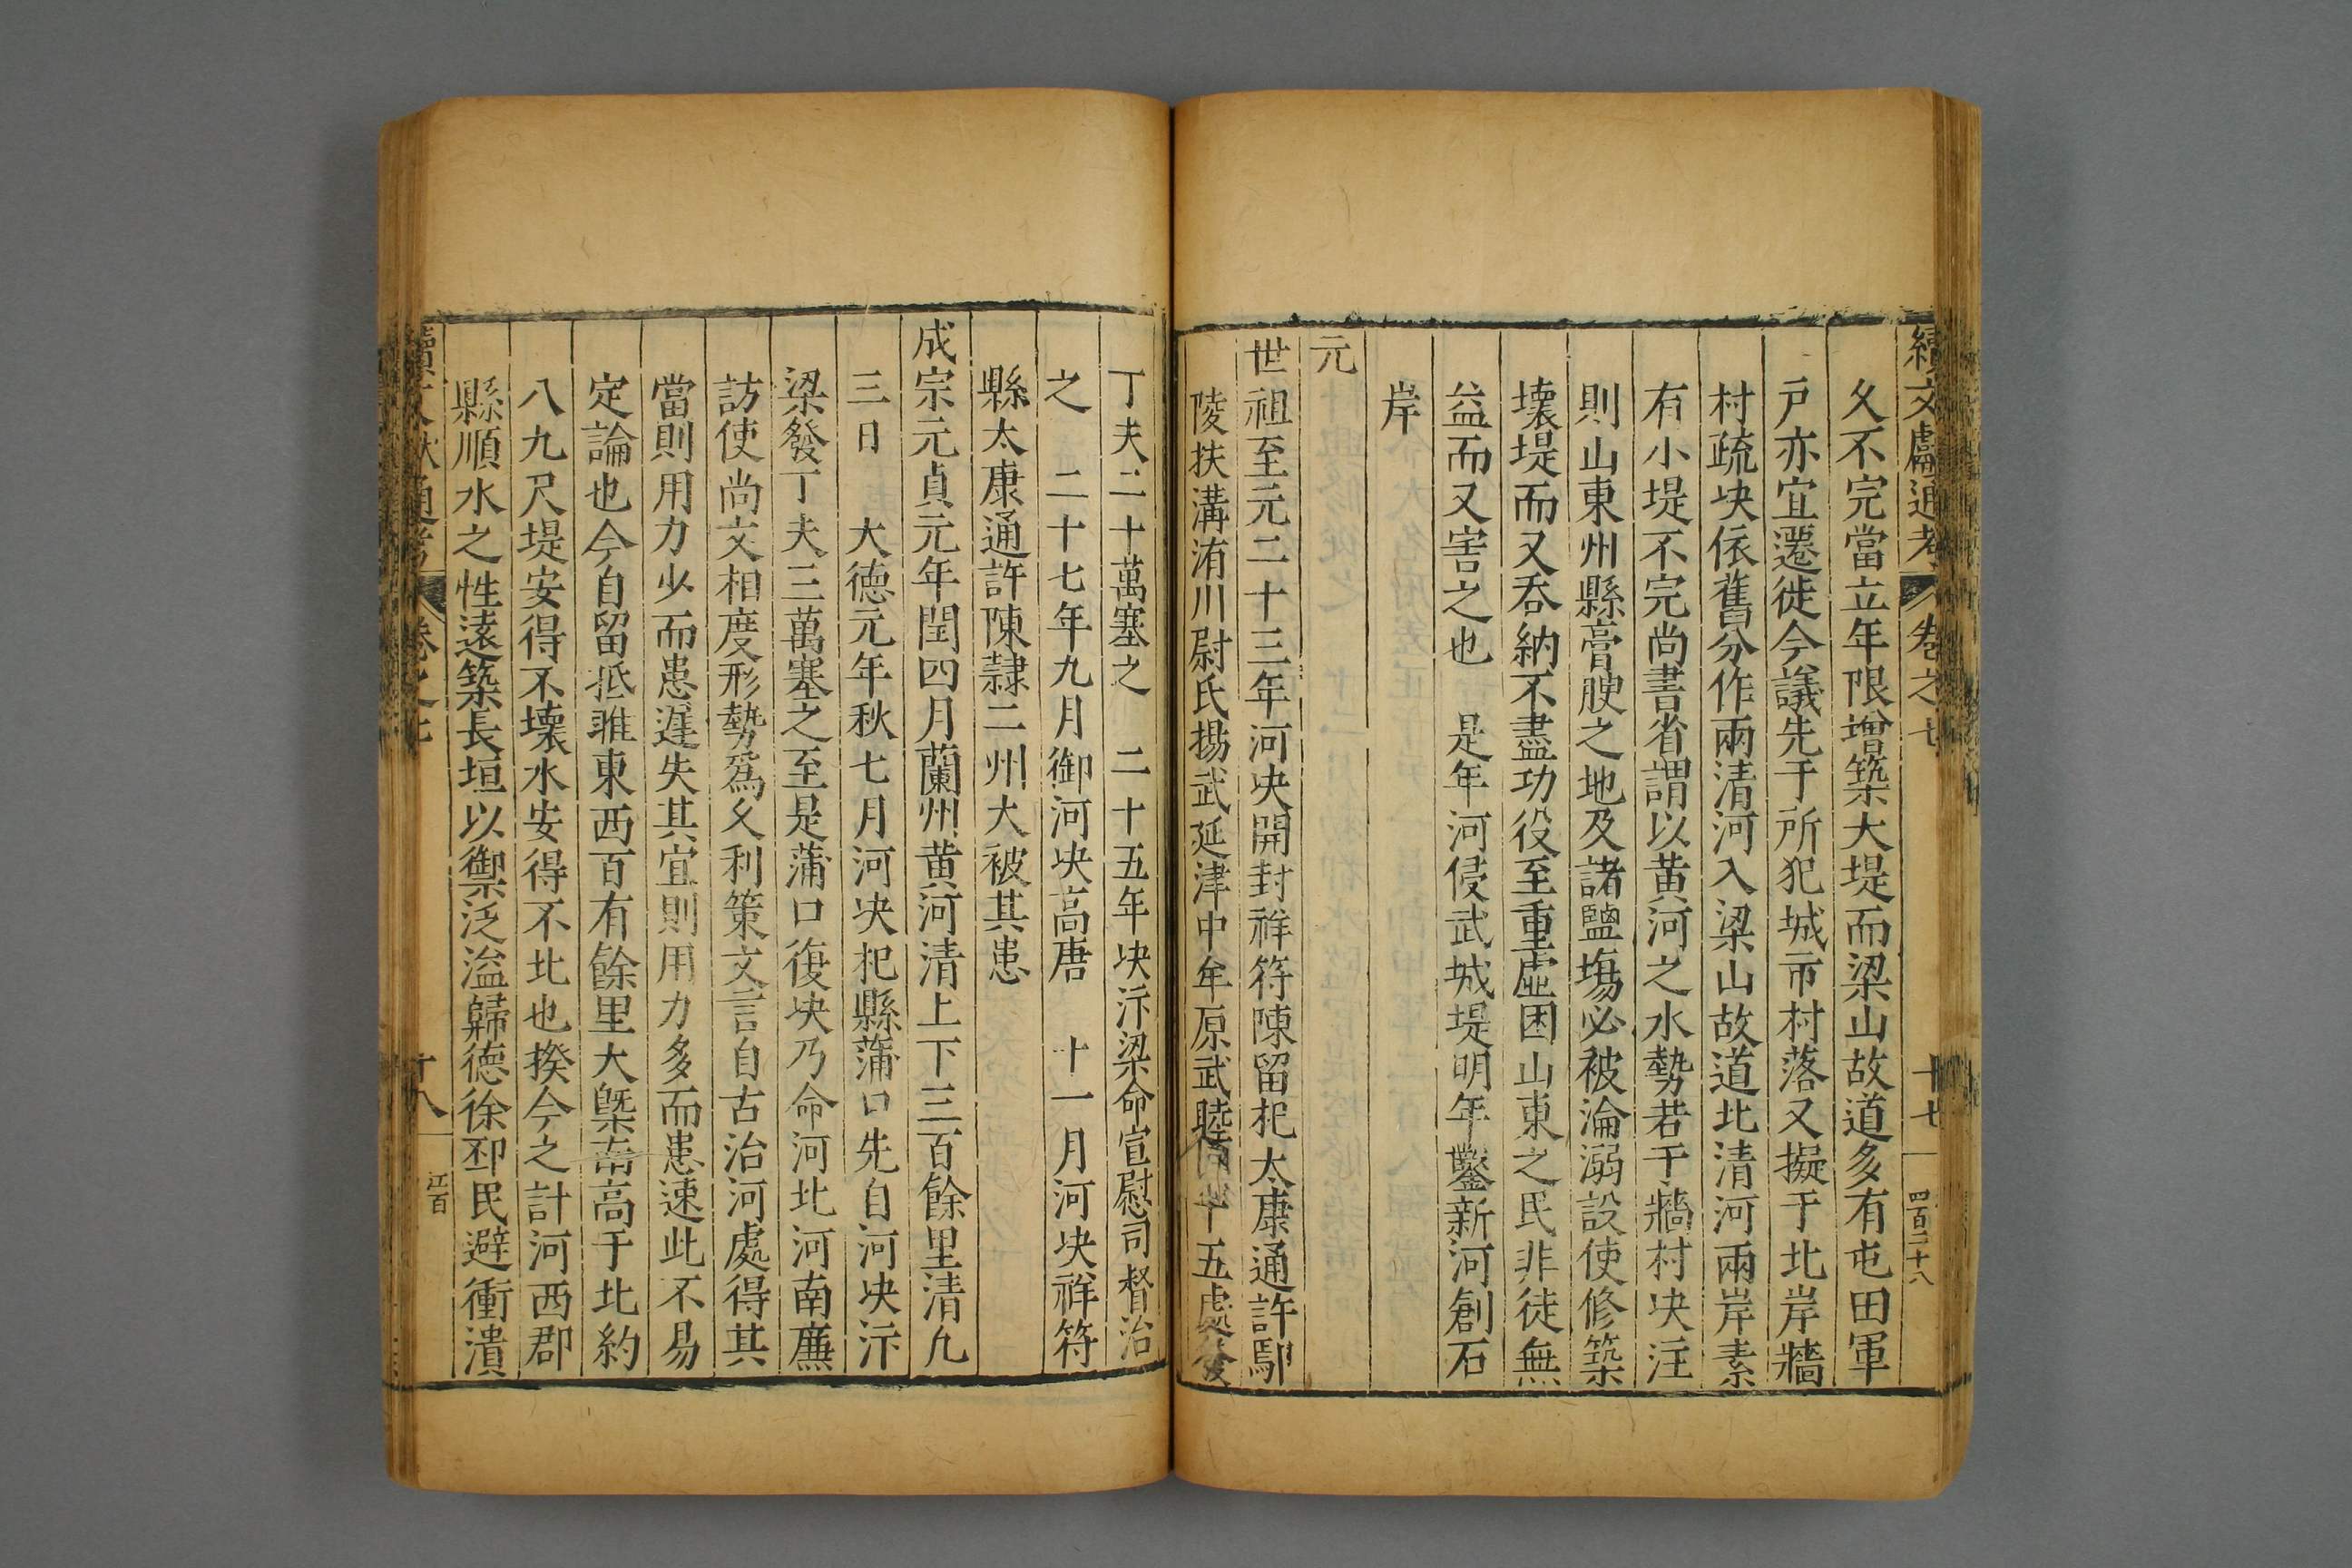 續文獻通考 卷之七 十七 四百二十八
久不完當立年限增築大堤而梁山故道多有屯田軍
戶亦宜遷徙今議先于所犯城市村落又擬于北岸牆
村疏決依舊分作兩清河入梁山故道北清河兩岸素
有小堤不完尚書省謂以黃河之水勢若于牆村決注
則山東州縣膏腴之地及諸鹽塲必被淪溺設使修築
壞堤而又吞納不盡功役至重虛困山東之民非徒無
益而又害之也 是年河侵武城堤明年鑿新河創石
岸
元
世祖至元二十三年河决開封祥符陳留杞太康通許鄢
陵扶溝洧川尉氏揚武延津中牟原武睦州十五處發
丁夫二十萬塞之 二十五年决汴梁命宣慰司督治
之 二十七年九月御河决高唐 十一月河决祥符
縣太康通許陳隷二州大被其患
成宗元貞元年閏四月蘭州黃河清上下三百餘里清凢
三日 大德元年秋七月河决杞縣蒲口先自河决汴
梁發丁夫三萬塞之至是蒲口復决乃命河北河南廉
訪使尚文相度形勢爲久利策文言自古治河處得其
當則用力少而患遲失其宜則用力多而患速此不易
定論也今自留抵睢東西百有餘里大槩南高于北約
八九尺堤安得不壞水安得不北也揆今之計河西郡
縣順水之性遠築長垣以禦泛溢歸德徐邳民避衝潰
續文獻通考 卷之七 十八 江百